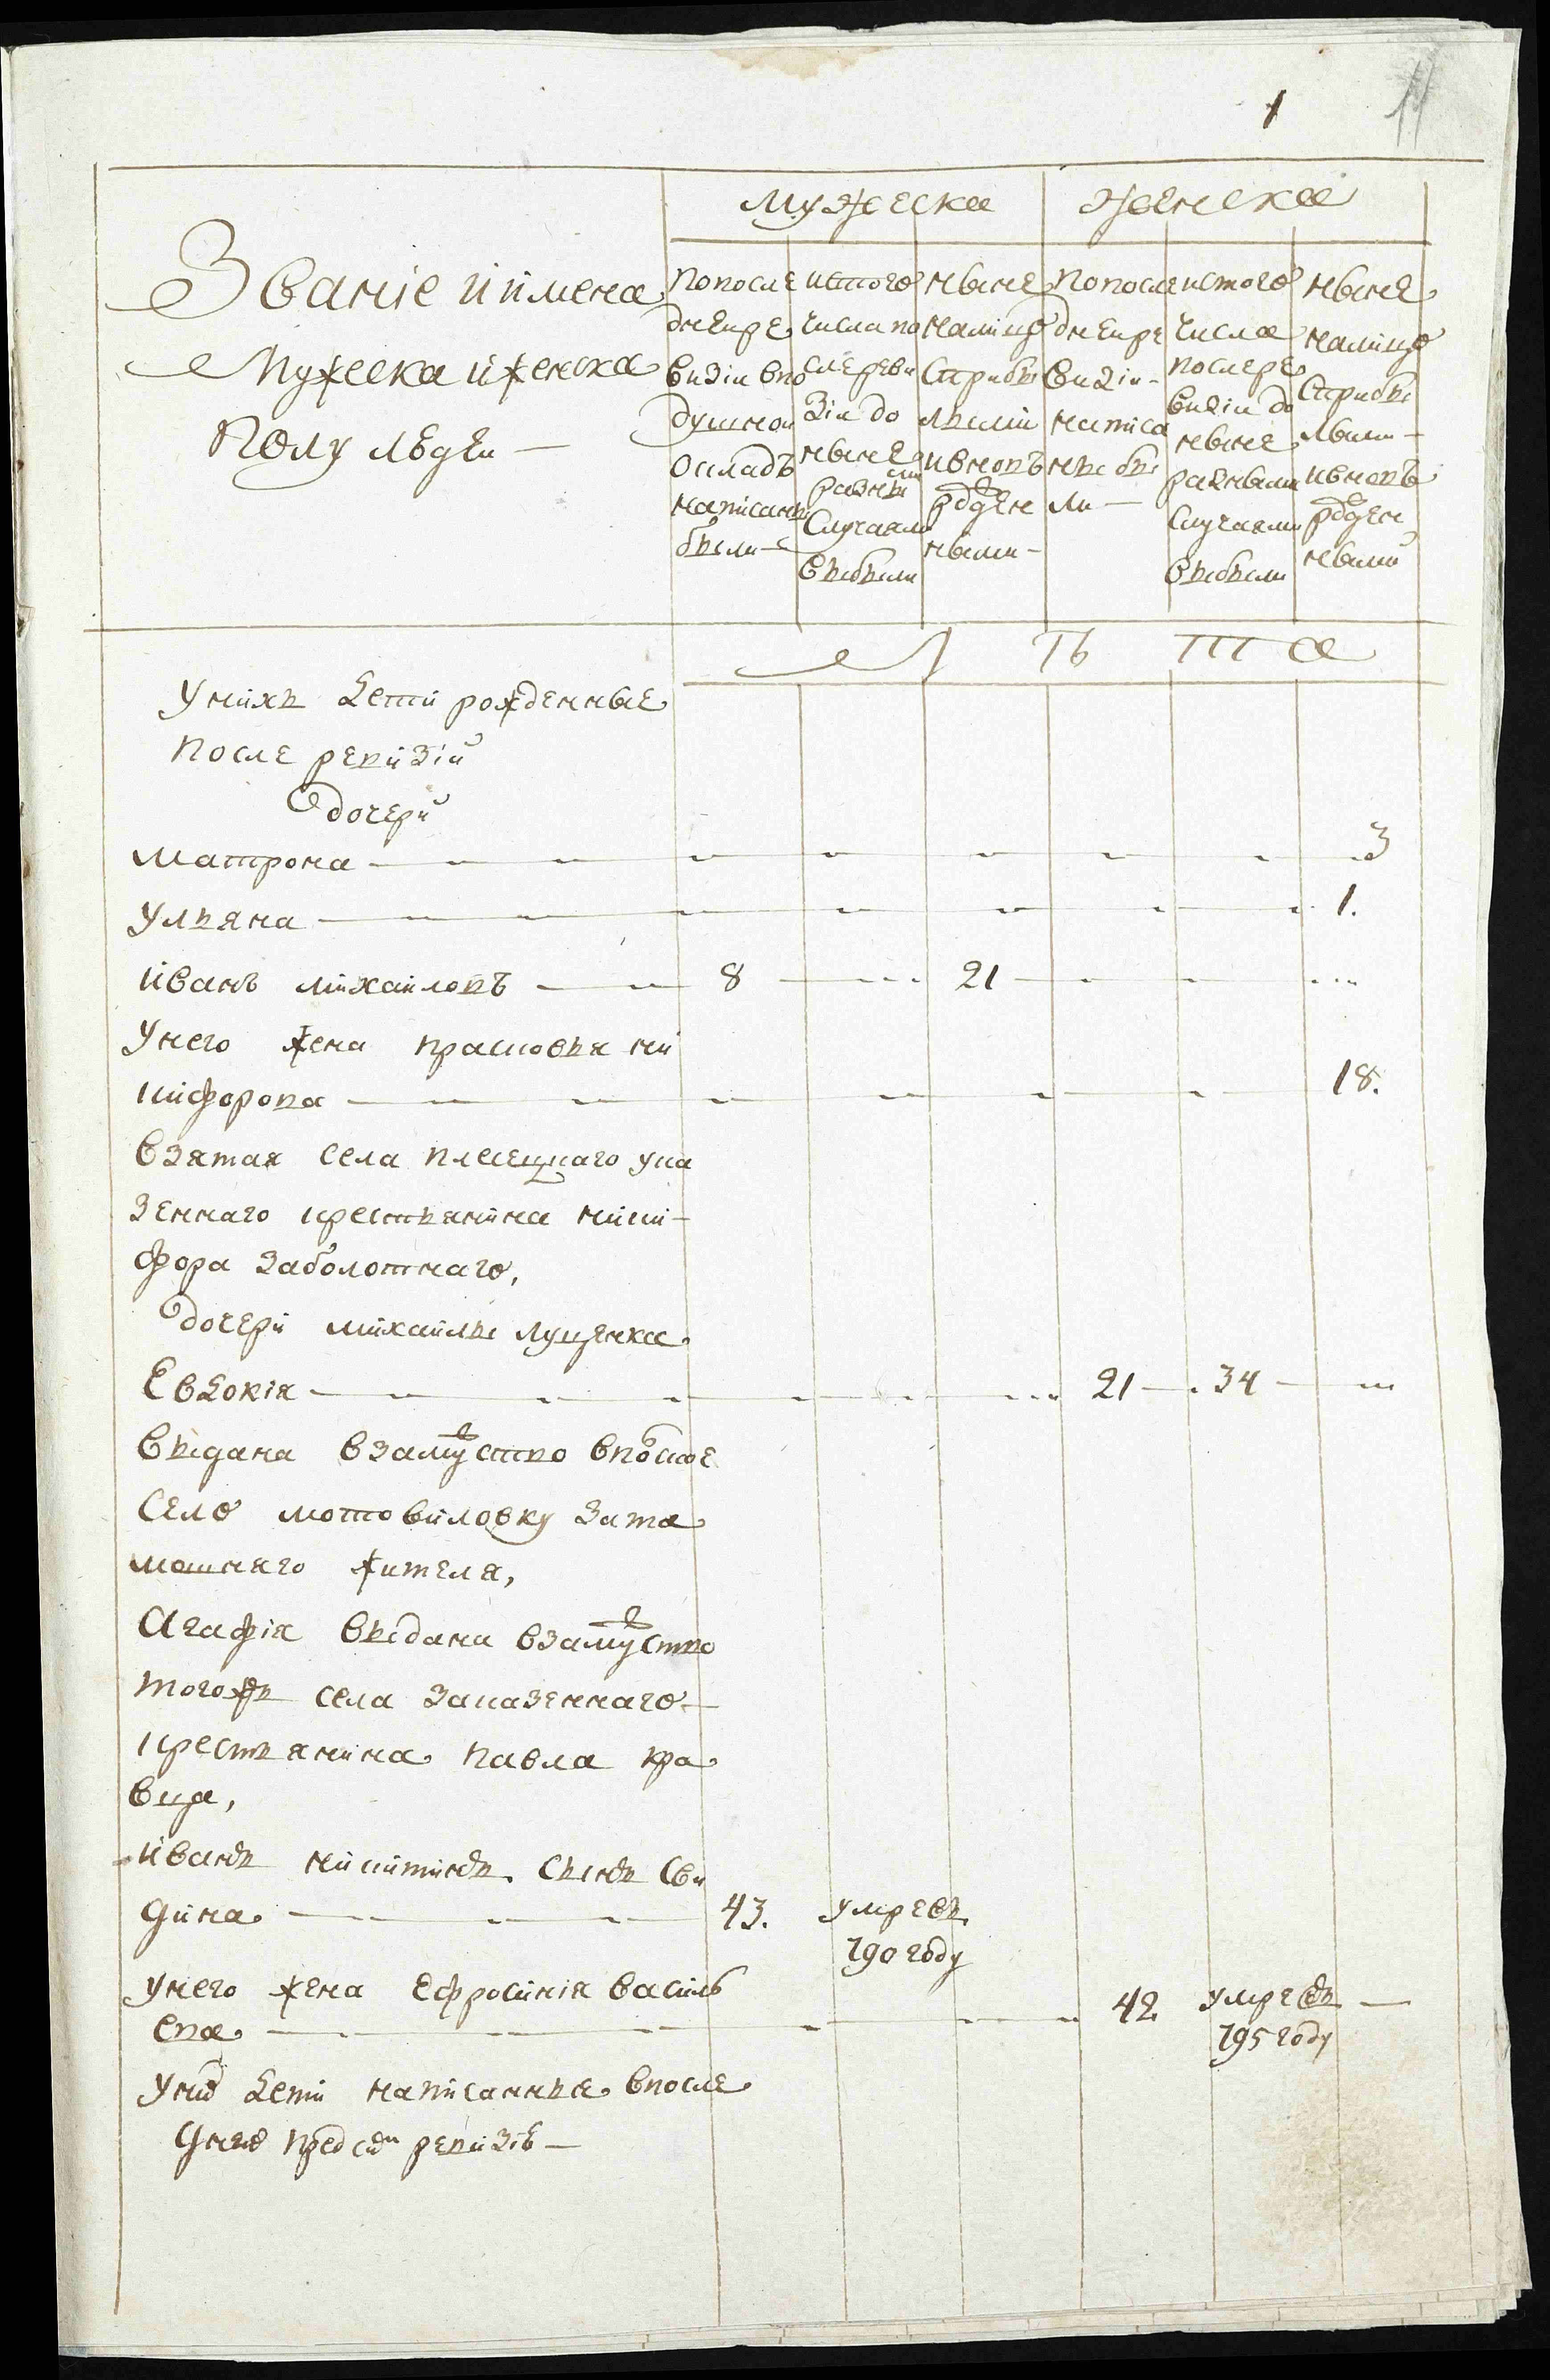 1
11
мужеска женска
Званіе и имена
мужеска и женска
полу людеи —
по после
дней ре
визіи в по
душной
окладъ
написаны
были —
ис того
числа по
сле реви
зіи до
ныне
разны
ми
случаями
выбыли
ныне
на лицо
с прибы
лыми
и вновь
рожден
ными —
по после
дней ре
визіи —
написа
ны бы
ли —
ис того
числа
после ре
визіи до
ныне
разными
случаями
выбыли
ныне
на лицо
с прибы
лыми —
и вновь
рожден
ными
Л ѣ т а
у нихъ дети рожденные
после ревизіи
дочери
матрона — 3
ульяна — 1.
иванъ михаиловъ — 8 — 21 —
у него жена прасковья ни
кифорова — 18.
взятая села плесецкаго у ка
зеннаго крестьянина ники-
фора заболотнаго,
дочери михаилы луценка
Евдокія — 21 — 34 —
выдана взамужство в полское
село мотовиловку за та
мошняго жителя,
Агафія выдана взамужство
тогожъ села за казеннаго —
крестьянина павла кра
вца,
иванъ никитинъ сынъ сви
дина — 43. умре въ
790 году
у него жена Ефросинія василь
ева — 42 умре въ —
795 году
у них дети написанные в после
дней пред сим ревизіи —